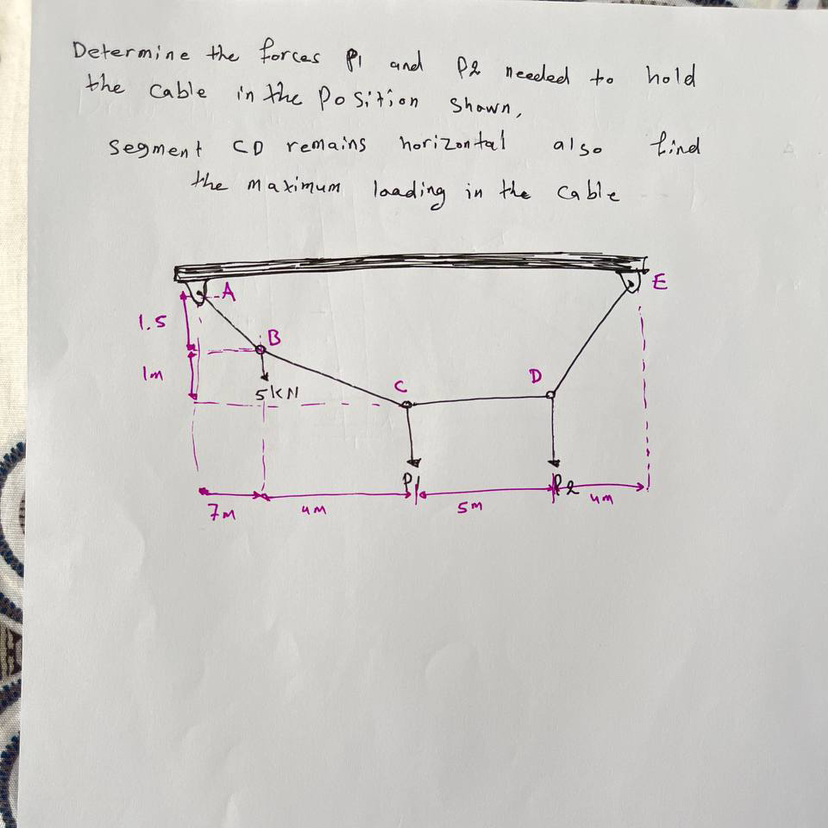 Determine the forces P1 and P2 needed to hold
the cable in the position shown,
segment CD remains horizontal also find
the maximum loading in the cable
A
E
1.5
B
1m
5kN
C
D
P1
P2
7m
4m
5m
4m